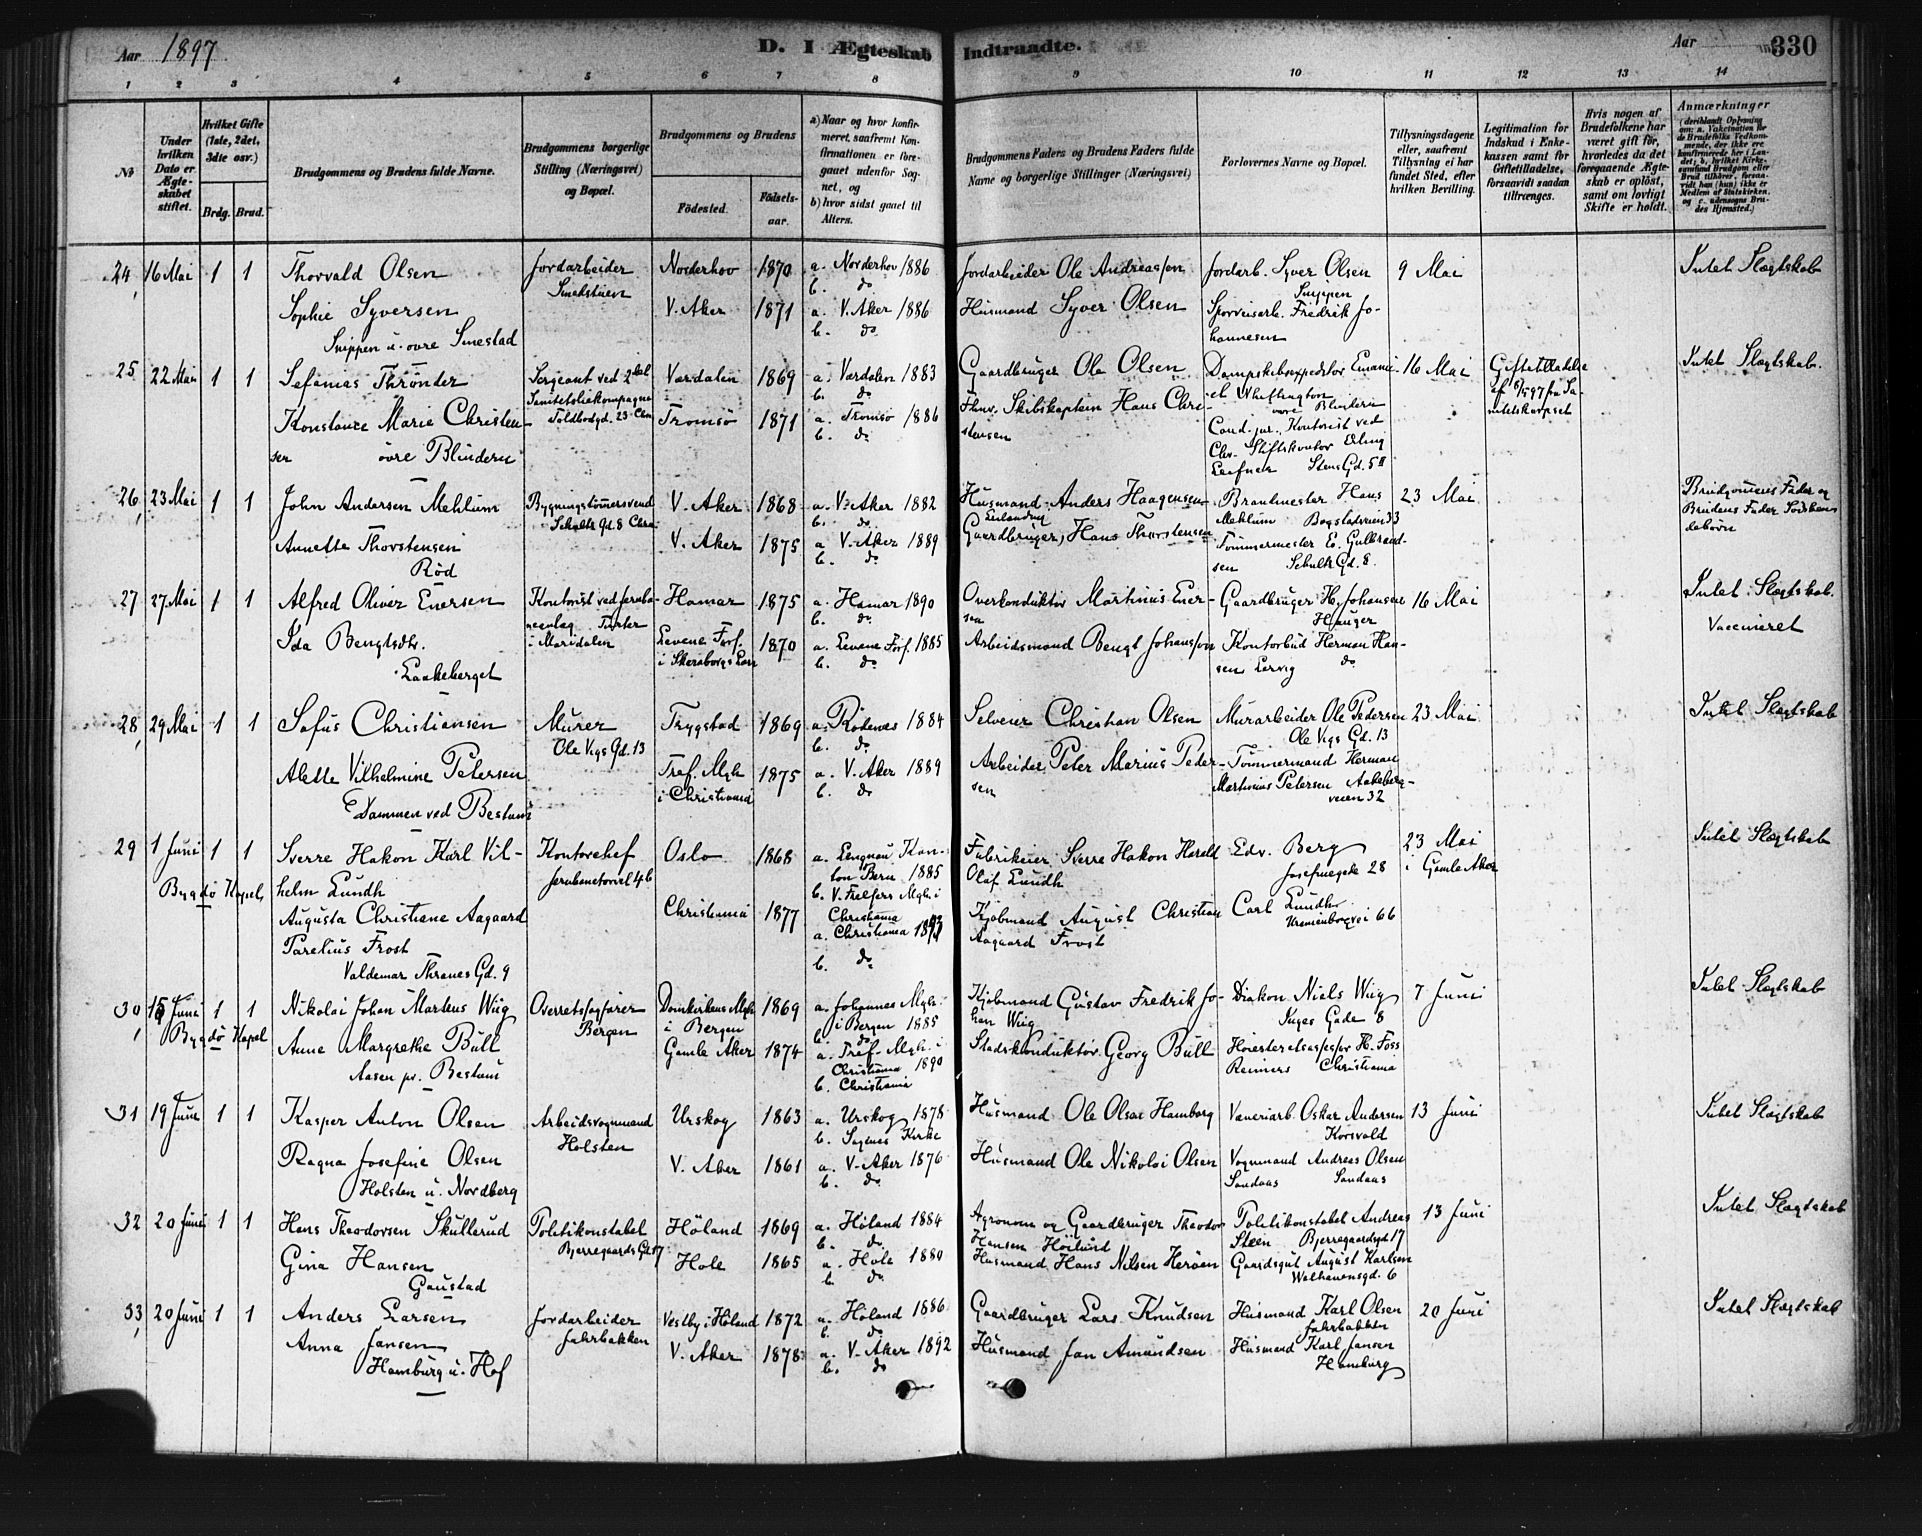 Aar 1897.
D. I Ægteskab Indtraadte.
Aar
330
1 2 3 4 5 6 7 8 9 10 11 12 13 14
No
Under hvilken Dato er Ægteskabet stiftet.
Hvilket Gifte (1ste, 2det, 3die osv.)
Brdg. Brud.
Brudgommens og Brudens fulde Navne.
Brudgommens borgerlige Stilling (Næringsvei) og Bopæl.
Brudgommens og Brudens
Födested.
Födselsaar.
a) Naar og hvor konfirmeret, saafremt Konfirmationen er foregaaet udenfor Sognet, og
b) hvor sidst gaaet til Alters.
Brudgommens Faders og Brudens Faders fulde Navne og borgerlige Stillinger (Næringsvei)
Forlovernes Navne og Bopæl.
Tillysningsdagene eller, saafremt Tillysning ei har fundet Sted, efter hvilken Bevilling.
Legitimation for Indskud i Enkekassen samt for Giftetilladelse, forsaavidt saadan tiltrænges.
Hvis nogen af Brudefolkene har været gift för, hvorledes da det foregaaende Ægteskab er oplöst, samt om lovligt Skifte er holdt.
Anmærkninger
(deriblandt Oplysning om: a. Vaksination for de Brudefolks Vedkommende, der ikke ere konfirmerede her i Landet; b. hvilket Kirkesamfund Brudgom eller Brud tilhörer, forsaavidt han (hun) ikke er Medlem af Statskirken, og c. udensogns Brudes Hjemsted.)
24, 16 Mai 1 1 Thorvald Olsen Jordarbeider Norderhov 1870 a. Norderhov 1886 Jordarbeider Ole Andreassen Jordarb. Syver Olsen 9 Mai Intet Slægtskab
Smedstuen b. do Snippen
Sophie Syversen V. Aker 1871 a. V. Aker 1886 Husmand Syver Olsen Sporveisarb. Fredrik Jo-
Snippen u. övre Smestad b. do hannesen
25 22 Mai 1 1 Sefanias Thrönder Sergeant ved 2det Værdalen 1869 a. Værdalen 1883 Gaardbruger Ole Olsen Dampskibsexpeditör Emanu- 16 Mai Giftetilladelse Intet Slægtskab.
Sanitetskompagni b. do el Whittington
Toldbodgd. 23 Chra övre Blindern
Konstance Marie Christen- Tromsö 1871 a. Tromsö 1886 Fhnv. Skibskaptein Hans Chri- Cand. jur., Kontorist ved
sen övre Blindern b. do stensen Chr. Stiftskontor Erling
Stens Gd. 5 II
26, 23 Mai 1 1 John Andersen Mehlum Bygningstömersvend V. Aker 1868 a. V. Aker 1882 Husmand Anders Haagensen Brandmester Hans 23 Mai Brudgommens Fader og
Schultz Gd. 8 Chra b. do Mehlum Bogstadveien 33 Brudens Fader Södsken-
Annette Thorstensen V. Aker 1875 a. V. Aker 1889 Gaardbruger, Hans Thorstensen Tömmermester E. Gulbrand- debörn
Röd b. do sen Schultz Gd. 8.
27 27 Mai 1 1 Alfred Oliver Enersen Kontorist ved Jernba- Hamar 1875 a. Hamar 1890 Overkonduktör Martinius Ener- Gaardbruger H. Johansen 16 Mai Intet Slægtskab.
b. do sen Hauger Vaccineret
Ida Bengtsdtr. i Maridalen Levene Forf. 1870 a. Levene Forf. 1885 Arbeidsmand Bengt Johansson Kontorbud Herman Han-
Laakeberget i Skaraborgs Län b. do sen Lervig do
28, 29 Mai 1 1 Sofus Christiansen Murer Trygstad 1869 a. Rödenes 1884 Selveier Christian Olsen Murarbeider Ole Pedersen 23 Mai Intet Slægtskab
Ole Vigs Gd. 13 b. do Ole Vigs Gd. 13
Alette Vilhelmine Petersen Tref. Mgh. 1875 a. V. Aker 1889 Arbeider Peter Marius Peder- Tömmermand Herman
Dammen ved Bestum i Christiania b. do sen Martinius Petersen Aakeberg-
veien 32
29 1 Juni 1 1 Sverre Hakon Karl Vil- Kontorchef Oslo 1868 a. Lengnau Kan- Fabrikeier Sverre Hakon Harald Edv. Berg 23 Mai Intet Slægtskab
Bygdö Kapel helm Lundh Jernbanetorvet 4 b ton Bern 1885 Olaf Lundh Josefinegade 28 i Gamle Aker
b. V. Frelsers Mgh. i
Augusta Christiane Aagaard Christiania 1877 Christiania Kjöbmand August Christian Carl Lundh
Parelius Frost a. Christiania 1893 Aagaard Frost Uranienborgvei 66
Valdemar Thranes Gd. 9 b. do
30, 15 Juni 1 1 Nikolai Johan Martens Wiig Overretssagförer Domkirkens Mgh 1869 a. Johannes Mgh. Kjöbmand Gustav Fredrik Jo- Diakon Niels Wiig 7 Juni Intet Slægtskab
Bygdö Kapel Bergen i Bergen i Bergen 1885 han Wiig Inges Gade 8
Anne Margrethe Bull Gamle Aker 1874 b. do Stadskonduktör Georg Bull Höiesteretsassessor H. Foss
Aasen pr. Bestum a. Tref. Mgh. i Christiania 1890 Reimers Christiania
b. Christiania
31 19 Juni 1 1 Kasper Anton Olsen Arbeidsvognmand Urskog 1863 a. Urskog 1878 Husmand Ole Olsen Hamborg Væveriarb. Oskar Andersen 13 Juni Intet Slægtskab
Holsten b. Sagenes Kirke Korsvold
Ragna Josefine Olsen V. Aker 1861 a. V. Aker 1876 Husmand Ole Nikolai Olsen Vognmand Andreas Olsen
Holsten u. Nordberg b. do Sandaas Sandaas
32 20 Juni 1 1 Hans Theodorsen Skullerud Politikonstabel Höland 1869 a. Höland 1884 Agronom og Gaardbruger Theodor Politikonstabel Andreas 13 Juni Intet Slægtskab
Bjerregaards Gd 17 b. do Hansen Höilund Steen Bjerregaardsgd 17
Gina Hansen Hole 1865 a. Hole 1880 Husmand Hans Nilsen Heröen Gaardsgut August Karlsen
Gaustad b. do Welhavensgd. 6
33, 20 Juni 1 1 Anders Larsen Jordarbeider Vestby i Höland 1872 a. Höland 1886 Gaardbruger Lars Knudsen Husmand Karl Olsen 20 Juni Intet Slægtskab
Jahrbakken b. do Jahrbakken
Anna Jansen V. Aker 1878 a. V. Aker 1892 Husmand Jan Amundsen Husmand Karl Jansen
Hamburg u. Hof b. do Hamburg